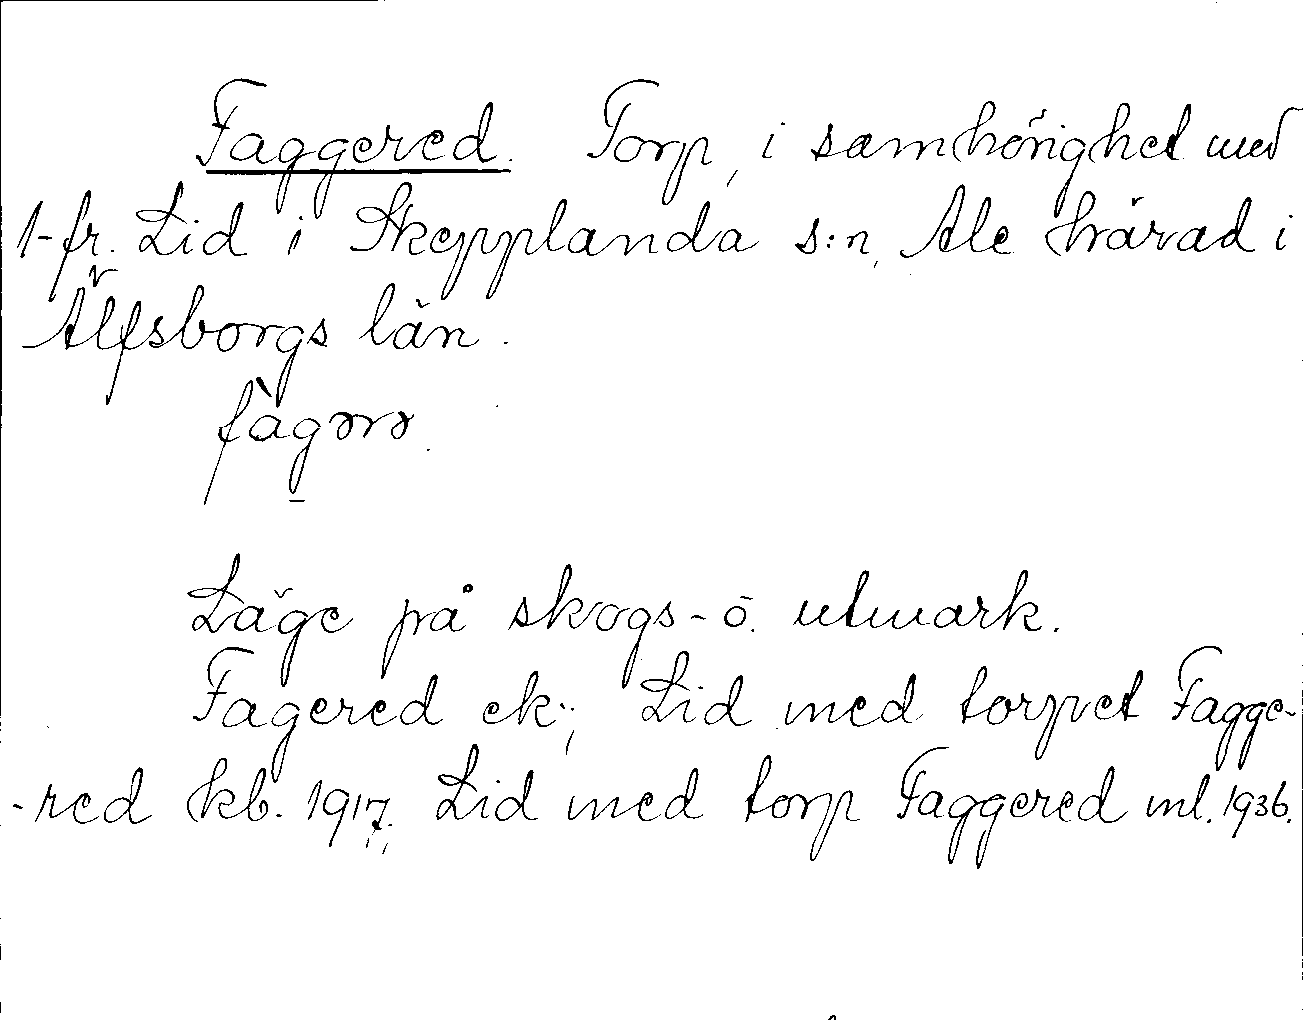 Faggered. Torp, i samhörighet med
1-fr. Lid i Skepplanda s:n, Ale härad i
Älfsborgs län.
fàgərə.
Läge på skogs- o. utmark.
Fagered ek.; Lid med torpet Fagge-
-red kb. 1917; Lid med torp Faggered ml. 1936.